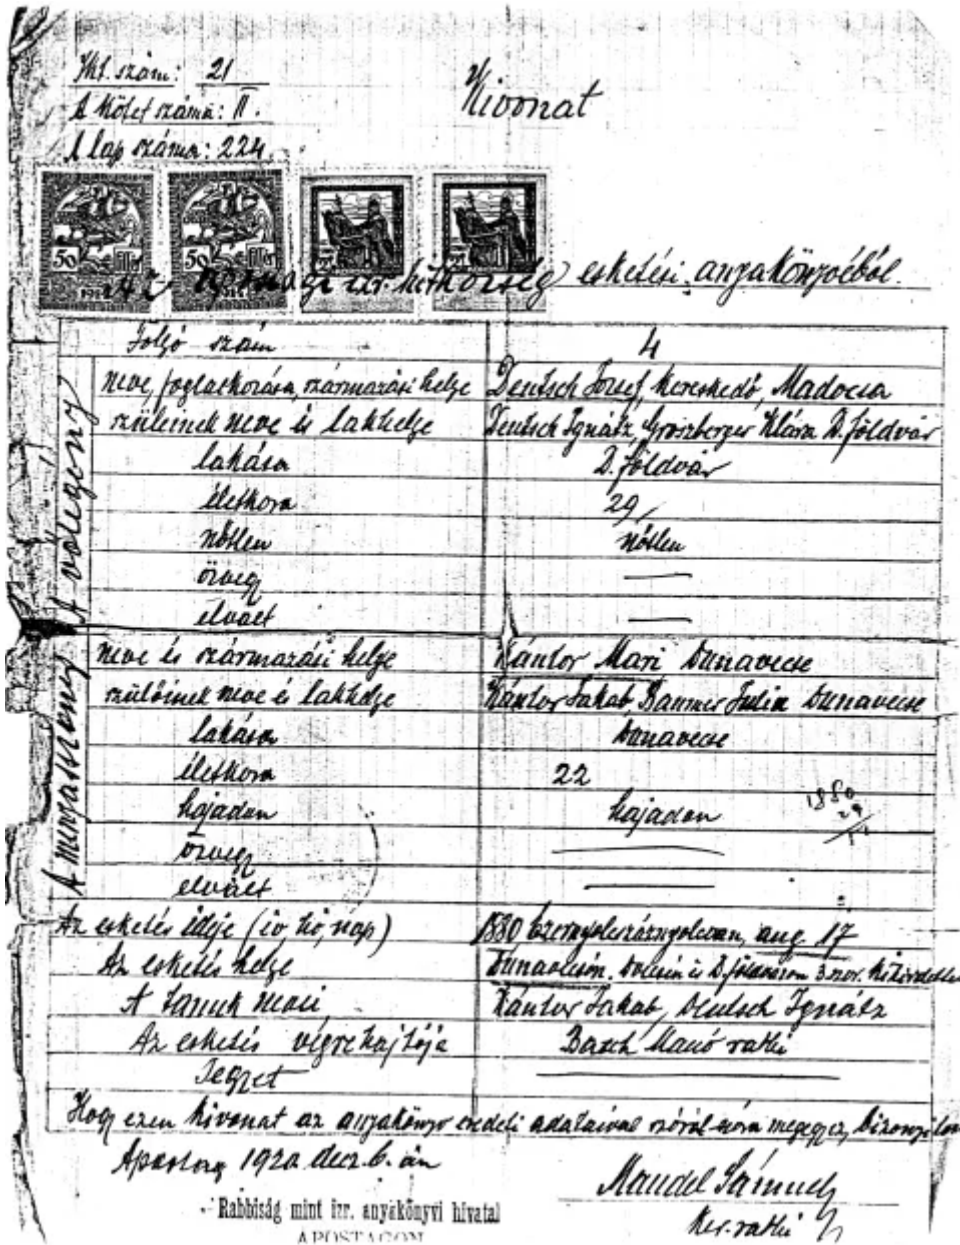 Ikt. szám: 21
A Kötet száma: II.
A lap száma: 224.
Kivonat
50 fillér 50 fillér
az izr. hitközség esketési anyakönyvéből.
Folyó szám 4
A vőlegény
neve, foglalkozása, származási helye Deutsch József, Kereskedő, Madocsa
szüleinek neve és lakhelye Deutsch Ignátz, Groszberger Klára D. földvár
lakása D. földvár
életkora 29
nőtlen nőtlen
özvegy —
elvált —
A menyasszony
neve és származási helye Kántor Mari Dunavecse
szüleinek neve és lakhelye Kántor Jakab, Julia Dunavecse
lakása Dunavecse
életkora 22
hajadon hajadon
1880
29
özvegy —
elvált —
Az esketés ideje (év, hó, nap) 1880 Ezernyolcszáznyolcvan, aug 17
Az esketés helye Dunavecsén. és D. földváron 3
A Tanuk nevei Kántor Jakab, Deutsch Ignátz
Az esketés végrehajtója Basch rabbi
Jegyzet —
Hogy ezen Kivonat az anyakönyv eredeti adataival szóról szóra megegyez, bizonyítom
Apostag 1920 dec. 6.-án
Mandel Sámuel
Ker. rabbi
Rabbiság mint izr. anyakönyvi hivatal
APOSTAGON